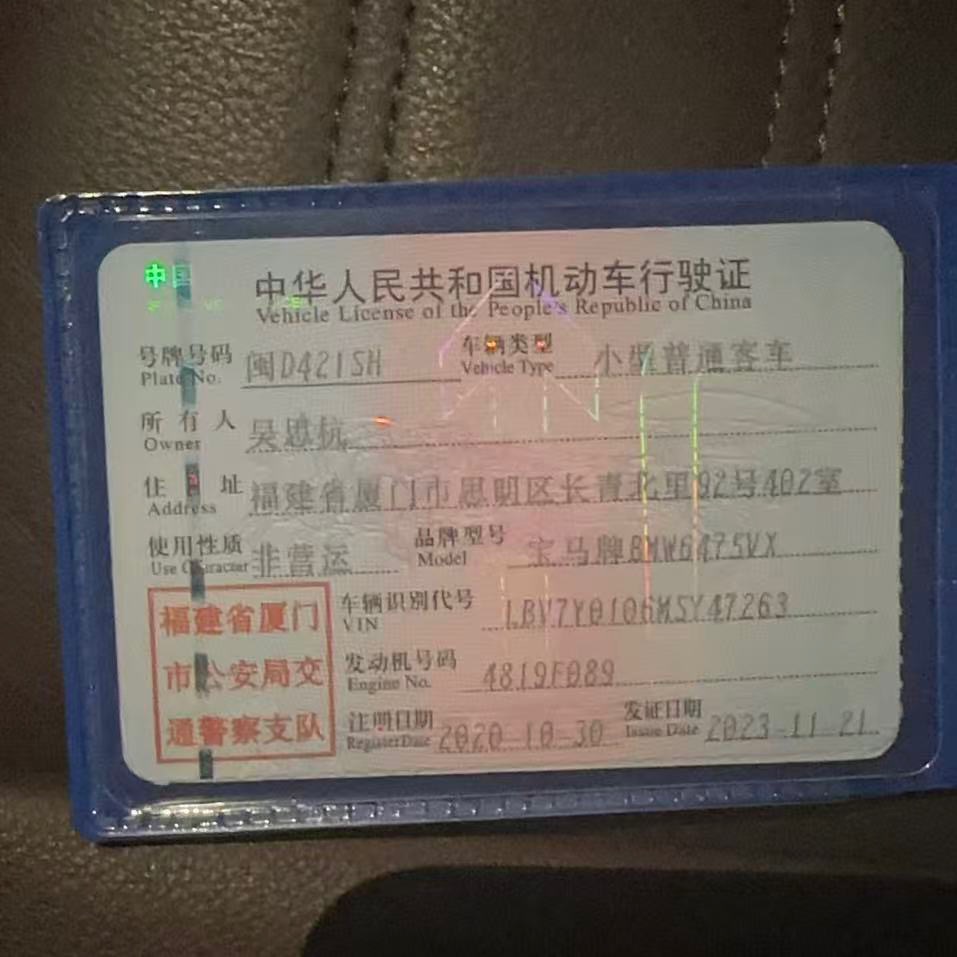 中国
中华人民共和国机动车行驶证
Vehicle License of the People's Republic of China
号牌号码 闽D421SH 车辆类型 小型普通客车
Plate No. Vehicle Type
所有人 吴思杭
Owner
住址 福建省厦门市思明区长青北里92号402室
Address
使用性质 非营运 品牌型号 宝马牌BMW6475VX
Use Character Model
福建省厦门
市公安局交
通警察支队
车辆识别代号 LBV7Y0106MSY47263
VIN
发动机号码 4819F089
Engine No.
注册日期 2020-10-30 发证日期 2023-11-21
Register Date Issue Date